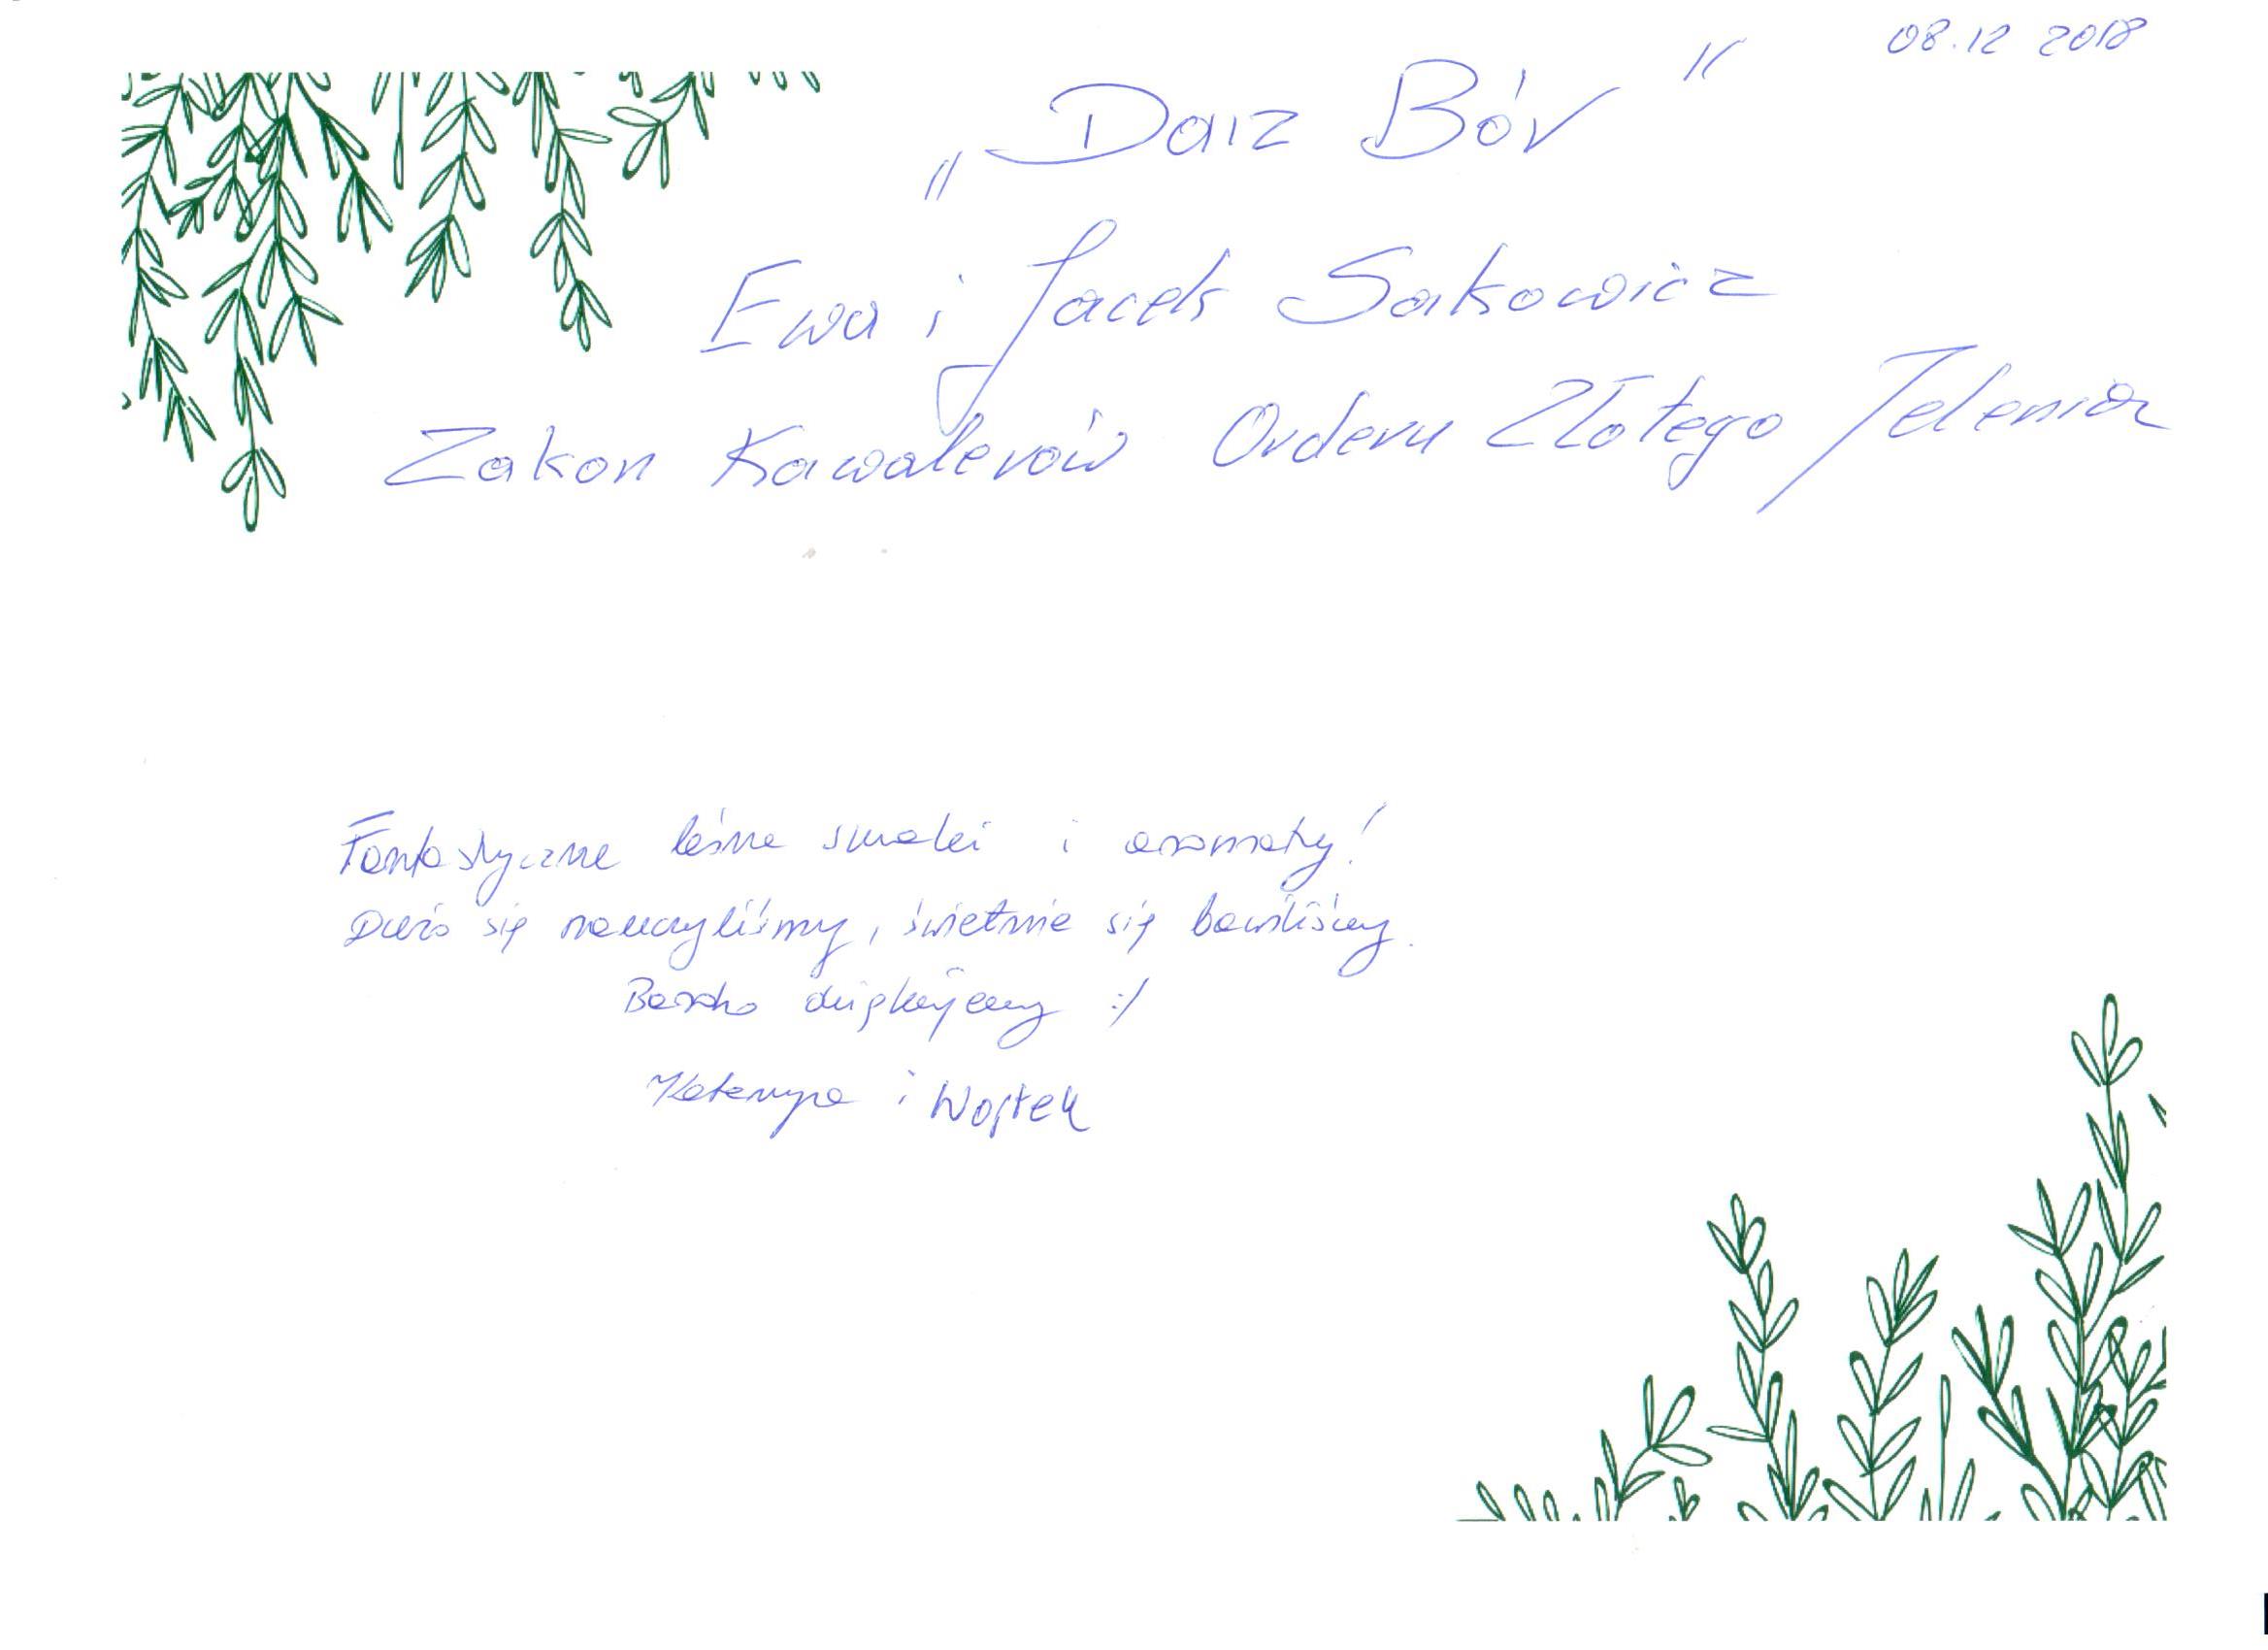 08.12 2018
„Darz Bór"
Ewa i Jacek Sakowicz
Zakon Kawalerów Orderu Złotego Jelenia
Fantastyczne leśne smaki i aromaty!
Dużo się nauczyliśmy, świetnie się bawiliśmy.
Bardzo dziękujemy :)
Kateryna i Wojtek